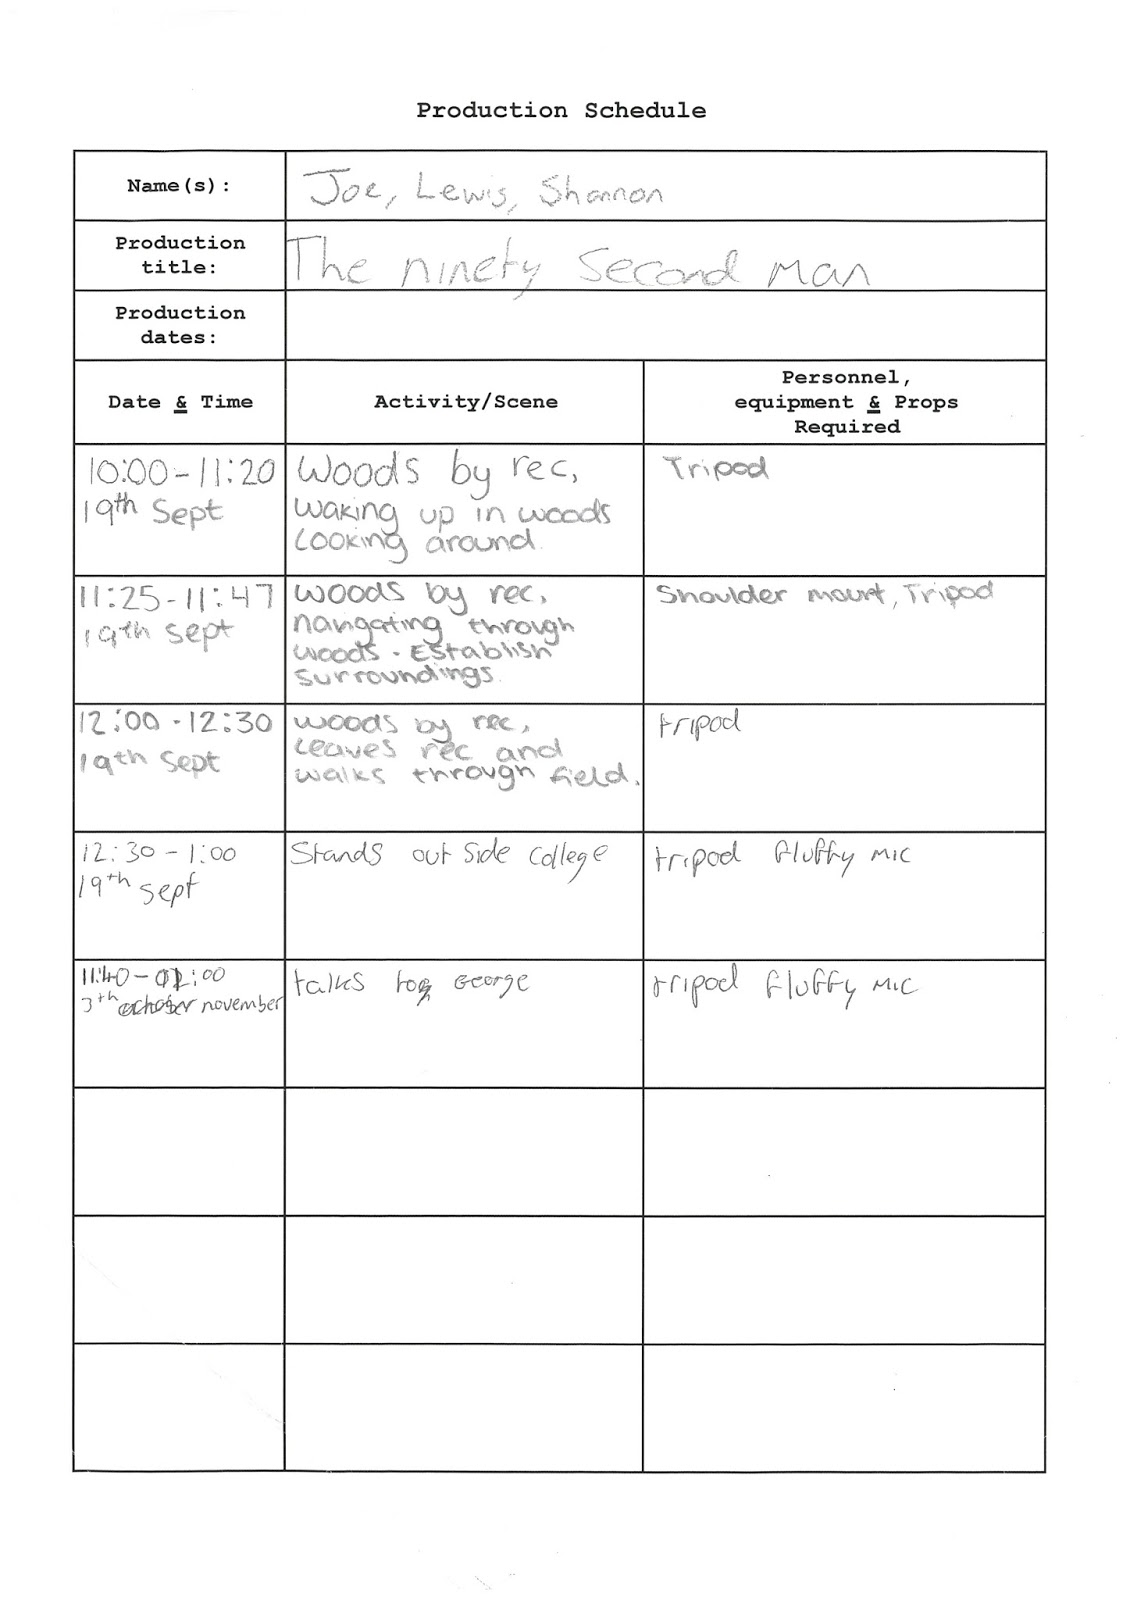 Production Schedule
Name(s):
Joe, Lewis, Shannon
Production
title:
The ninety Second Man
Production
dates:
Date & Time
Activity/Scene
Personnel,
equipment & Props
Required
10:00-11:20
19th Sept
Woods by rec,
waking up in woods
Looking around.
Tripod
11:25-11:47
19th Sept
woods by rec,
navigating through
woods. Establish
surroundings.
Shoulder mount, Tripod
12:00-12:30
19th Sept
woods by rec,
leaves rec and
walks through field.
tripod
12:30-1:00
19th sept
Stands out side college
tripod fluffy mic
11:40-
3th november
talks to George
tripod fluffy mic